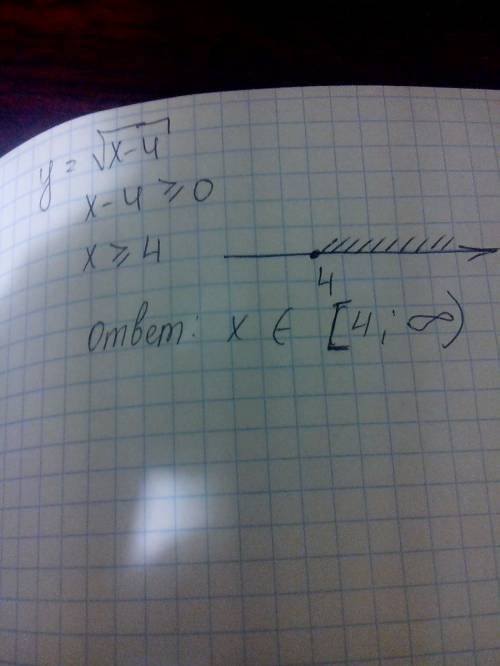 y = √x-4
x-4 ≥ 0
x ≥ 4
4
Ответ: x ∈ [4; ∞)